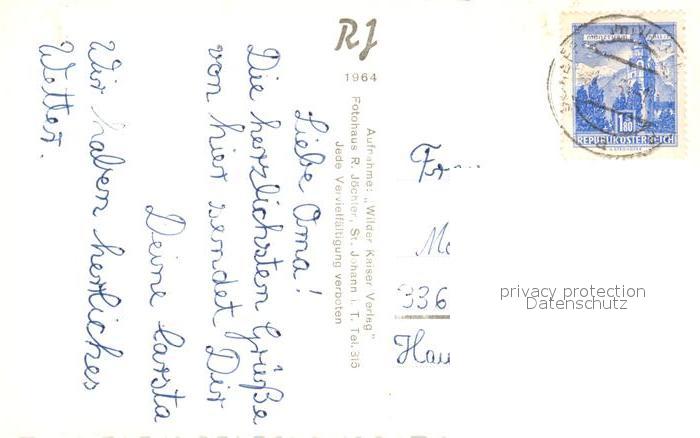 RJ
1964
Aufnahme: „Wilder Kaiser Verlag"
Fotohaus R. Jöchler, St. Johann i. T. Tel. 315
Jede Vervielfältigung verboten
Liebe Oma!
Die herzlichsten Grüße
von hier sendet Dir
Deine Carsta
Wir haben herrliches
Wetter.
336
Hau
1.80
REPUBLIK ÖSTERREICH
privacy protection
Datenschutz